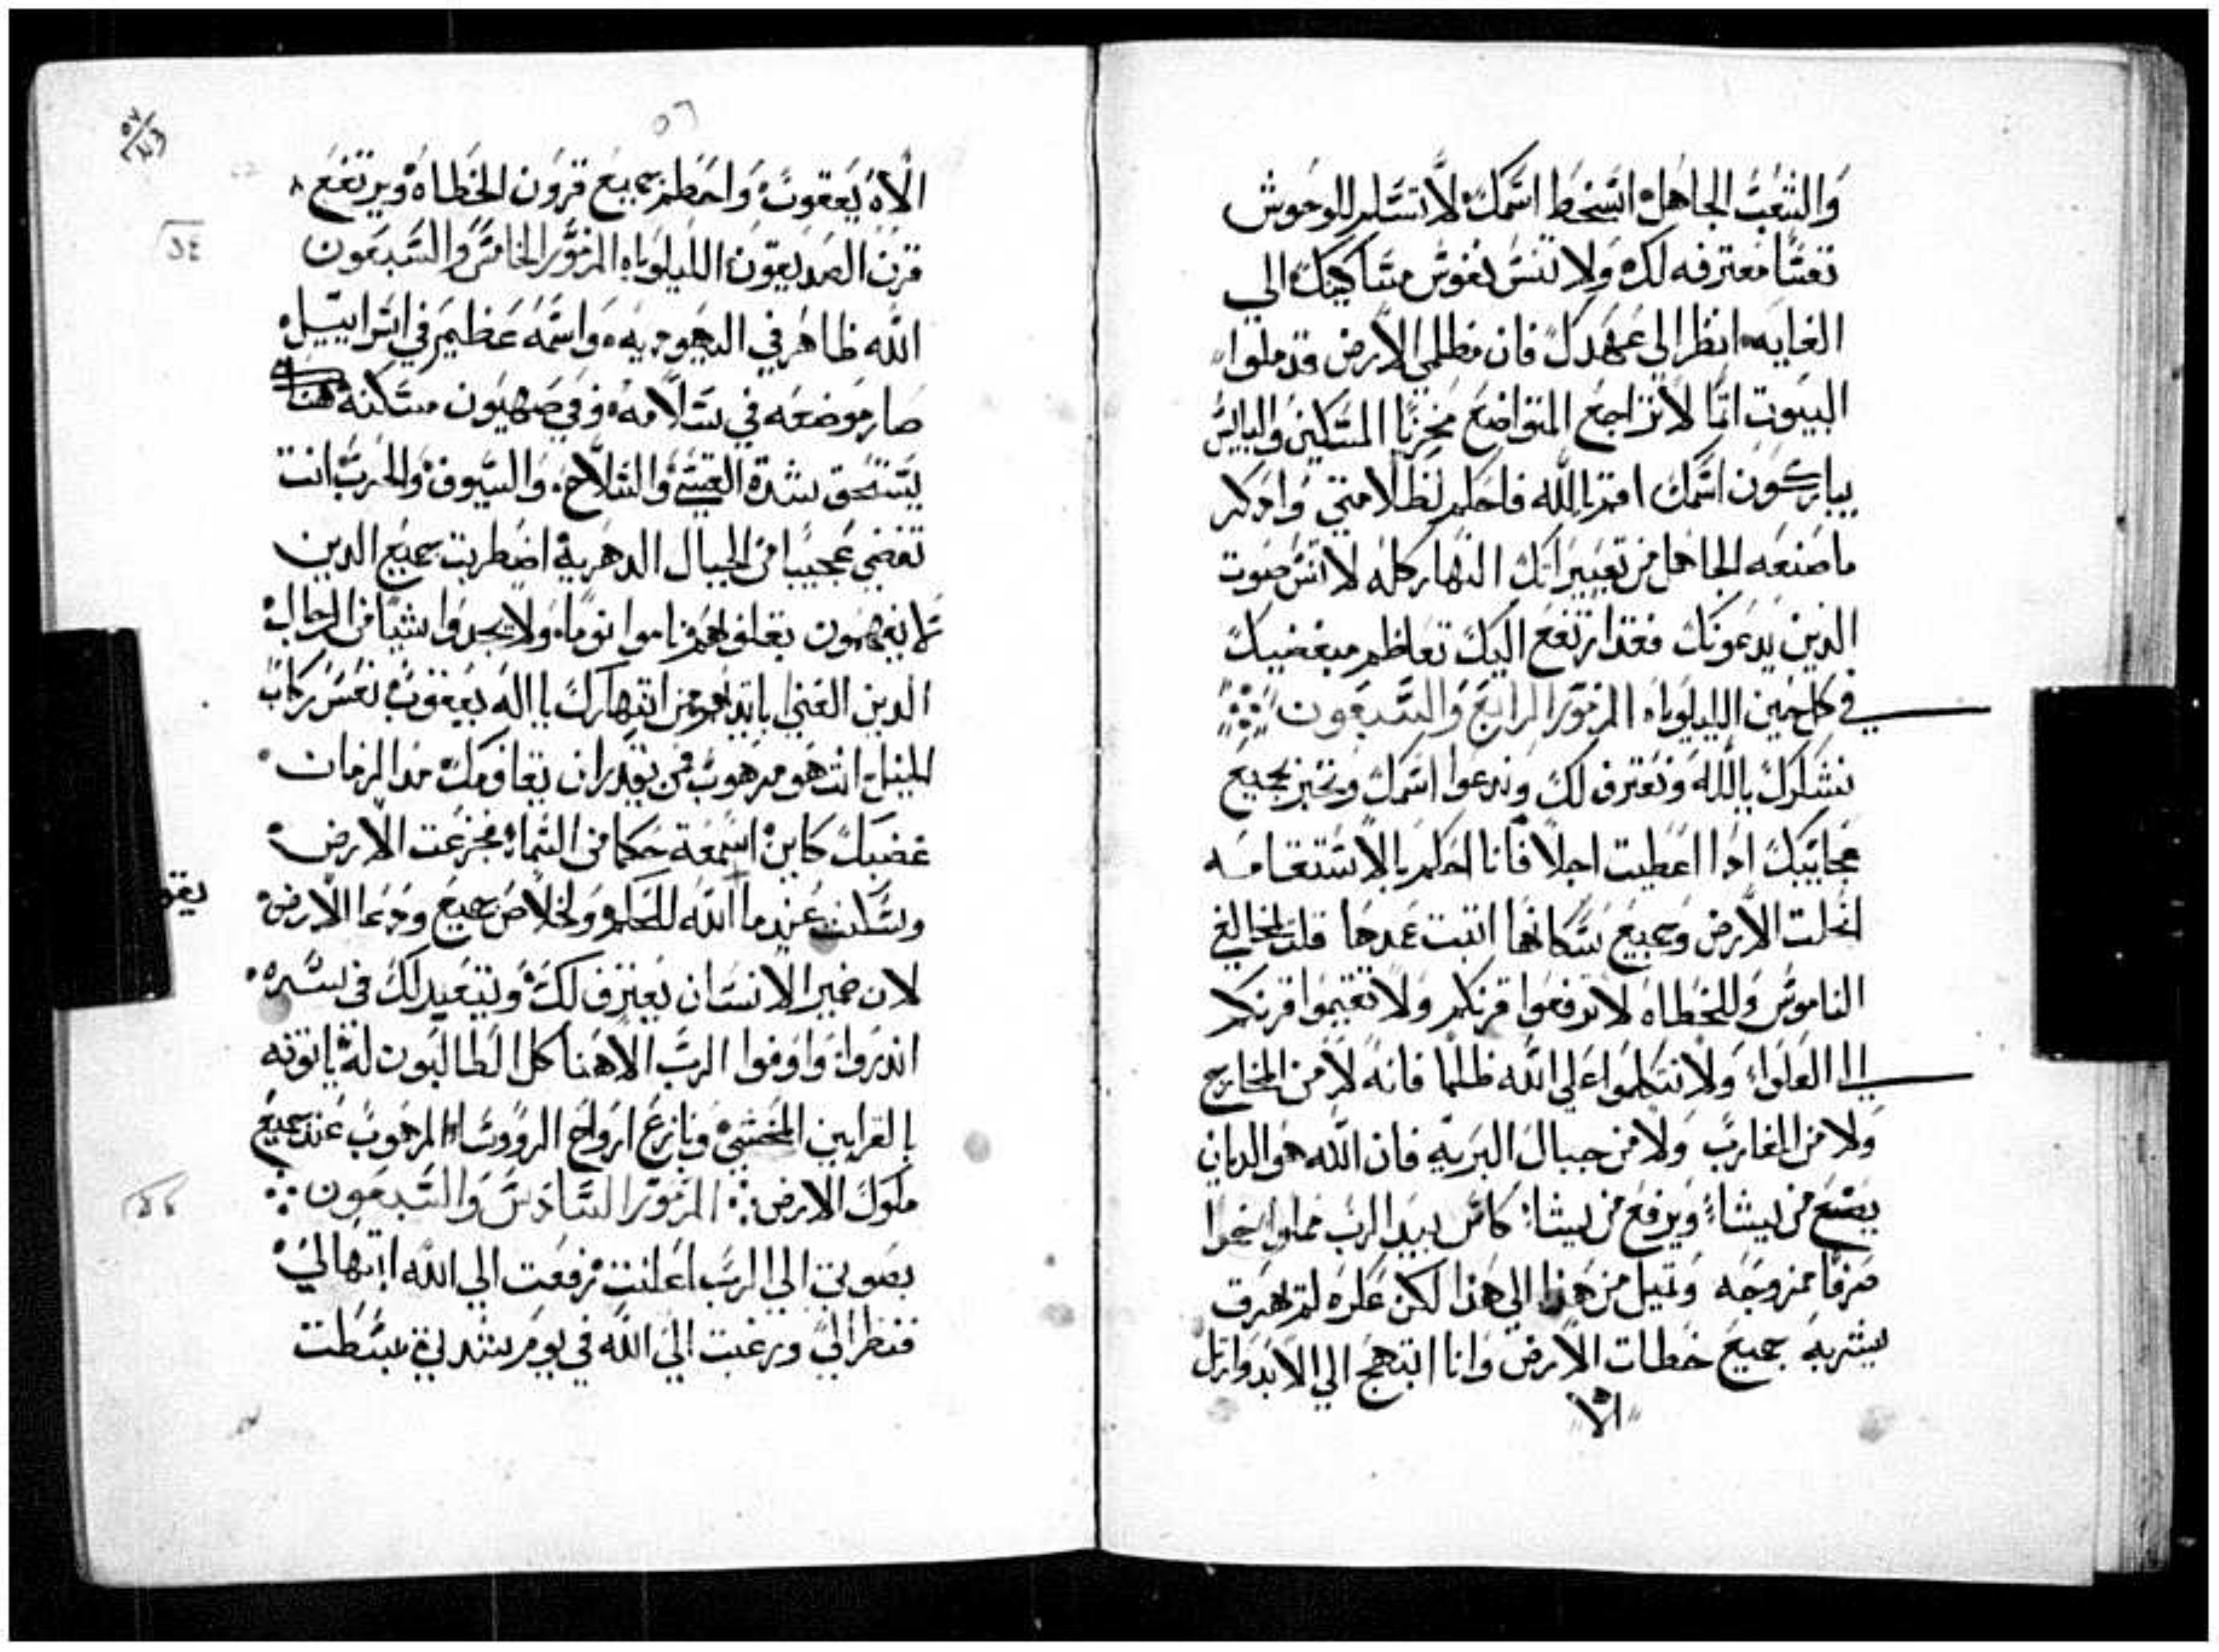 والشعب الجاهل اسخط اسمك لا تسلم للوحوش
نفسًا معترفه لك ولا تنس نفوس مساكينك الي
الغايه انظر الي عهدك فان مظلمي الارض قد ملوا
البيوت اثما لا تراجع المتواضع مخزيا المسكين والبايس
يباركون اسمك اقم يا الله فاحكم لظلامتي واذكر
ما صنعه الجاهل من تعييراتك النهار كله لا تنس صوت
الذين يدعونك فقد ارتفع اليك تعاظم مبغضيك
في كل حين الليلوياه المزمور الرابع والسبعون
نشكرك يا الله ونعترف لك وندعوا اسمك ونخبر بجميع
عجايبك اذا اعطيت اجلا فانا احكم بالاستقامه
انحلت الارض وجميع سكانها اثبت عمدها قلت لمخالفي
الناموس وللخطاه لا ترفعوا قرنكم ولا تقيموا قرنكم
الي العلوا ولا تتكلموا علي الله ظلما فانه لا من المخارج
ولا من المغارب ولا من جبال البريه فان الله هو الديان
يضع من يشاء ويرفع من يشاء كاس بيد الرب مملوا خمرا
صرفا ممزوجه وتميل من هذا الي هذا لكن عكره لم يهرق
يشربه جميع خطات الارض وانا ابتهج الي الابد وارتل
الاه
٥٦
٥٧
الاه يعقوب واحطم جميع قرون الخطاه ويرتفع
قرن الصديقون الليلوياه المزمور الخامس والسبعون
الله ظاهر في اليهوديه واسمه عظيم في اسراييل
صار موضعه في سلامه وفي صهيون مسكنه هناك
يستحق شدة القسي والسلاح والسيوف والحرب انت
تضي عجيبا من الجبال الدهرية اضطربت جميع الذين
لا يفهمون بقلوبهم ناموا نوما ولا يجدوا شيا من الرجال
الذين الغني بايديهم من انتهارك يا اله يعقوب نعس ركاب
الخيل انت هو مرهوب فمن يقدر ان يقاومك مدا الزمان
غضبك كاين اسمعة حكما من السماء فجزعت الارض
وسكنت عندما الله للحكم ولخلاص جميع ودعا الارض
يقو
لان ضمير الانسان يعترف لك وتبقيد لك في سره
انذروا واوفوا الرب الاهنا كل الطالبون له ياتونه
بالقرابين المخشي ونازع ارواح الروسا المرهوب عند جميع
ملوك الارض المزمور السادس والسبعون
بصوتي الي الرب اعلنت رفعت الي الله ابتهالي
فنظر الي ورغبت الي الله في يوم شدتي بسطت